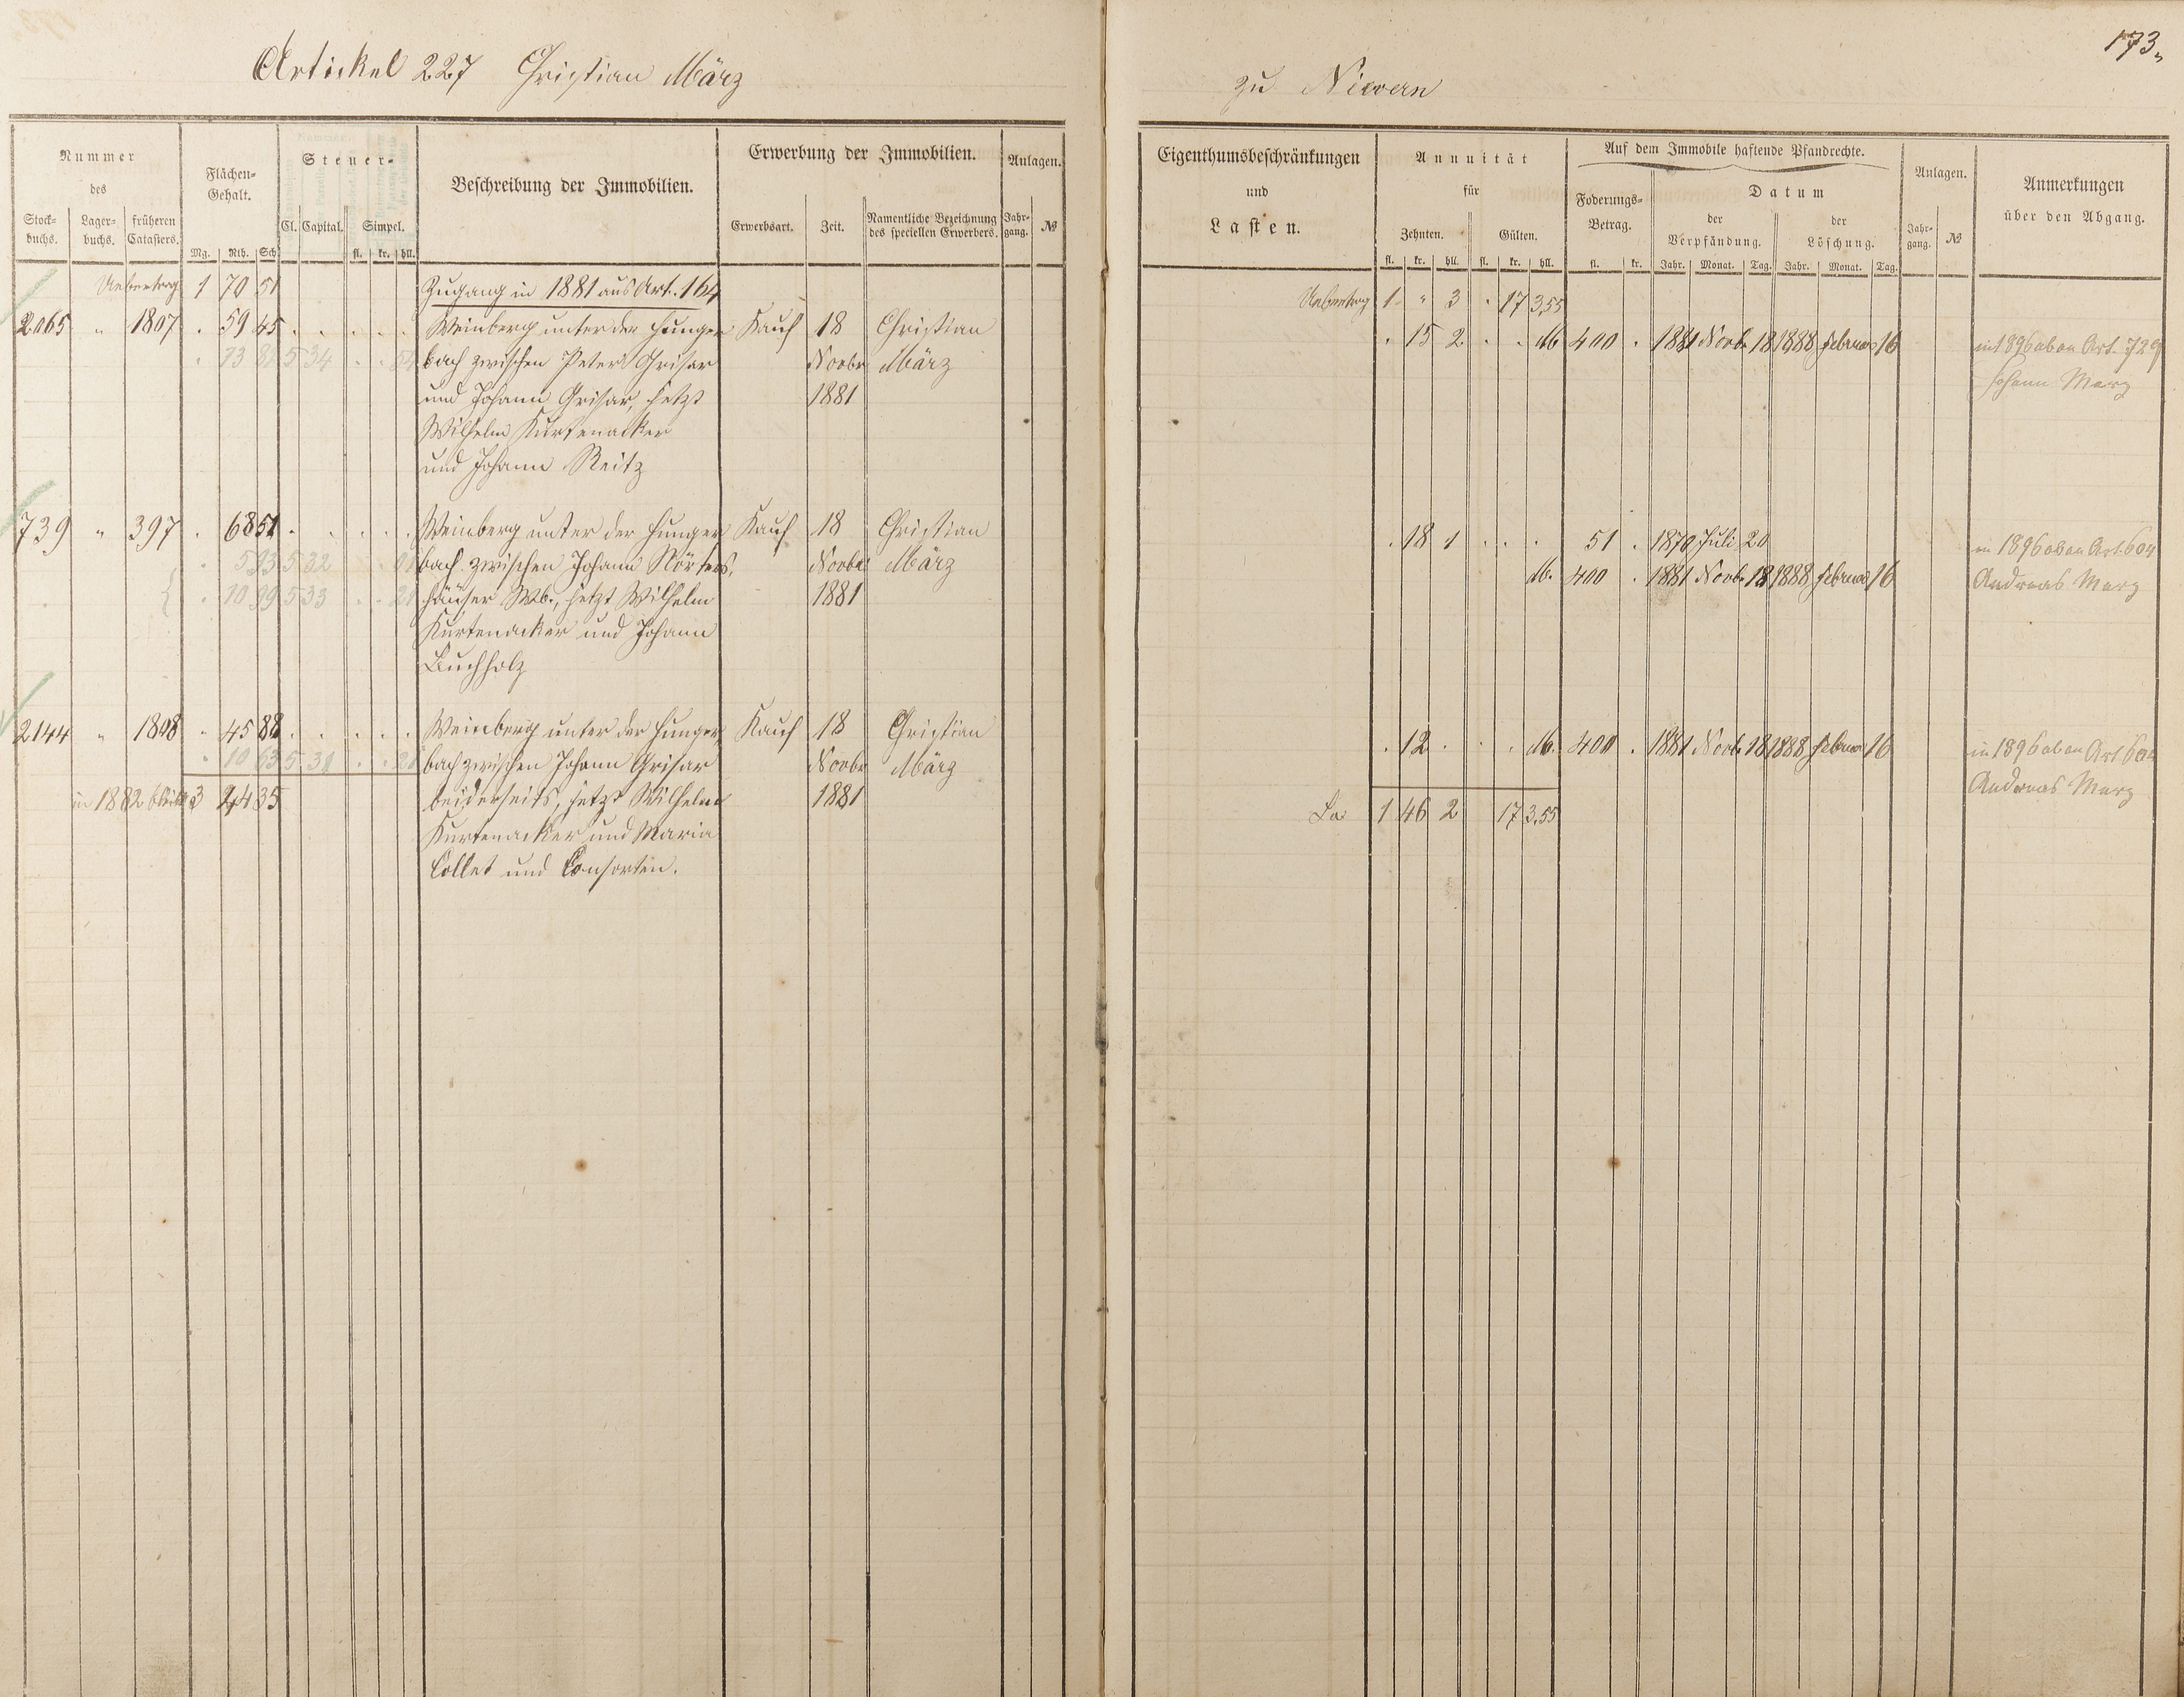 173.
Artickel 227 Christian März
zu Nievern
Nummer
des
Stock-
buchs.
Lager-
buchs.
früheren
Catasters.
Flächen-
Gehalt.
Mg. Rth. Sch.
Steuer-
Cl. Capital. Simpel.
fl. kr. hll.
Beschreibung der Immobilien.
Erwerbung der Immobilien.
Erwerbsart. Zeit.
Namentliche Bezeichnung
des speciellen Erwerbers.
Anlagen.
Jahr-
gang. №
Eigenthumsbeschränkungen
und
Lasten.
Annuität
für
Zehnten. Gülten.
fl. kr. hll. fl. kr. hll.
Auf dem Immobile haftende Pfandrechte.
Foderungs-
Betrag.
fl. kr.
Datum
der
Verpfändung.
der
Löschung.
Jahr. Monat. Tag. Jahr. Monat. Tag.
Anlagen.
Jahr-
gang. №
Anmerkungen
über den Abgang.
Uebertrag 1 70 51 Zugang in 1881 aus Art. 164
Uebertrag 1 " 3 . 17 3,55
2065 " 1807 . 59 45 . . . . . Weinberg unter der Hunger Kauf 18 Christian
. 73 5 34 . . 54 bach zwischen Peter Grisar Novbr März
und Johann Grisar, jetzt 1881
Wilhelm Kurtenacker
und Johann Reitz
. 15 2 . . M. 400 . 1881 Novb. 18 1888 Februar 16 in 1896 ab an Art. 729
Johann März
739 " 397 . 68 51 . . . . . Weinberg unter der Hunger Kauf 18 Christian
. 5 93 5 32 bach zwischen Johann Nörters, Novbr März
. 10 99 5 33 . . 21 häuser Wb., jetzt Wilhelm 1881
Kurtenacker und Johann
Buchholz
. 18 1 . . . 51 . 1870 Juli 20 in 1896 ab an Art. 604
M. 400 . 1881 Novb. 18 1888 Februar 16 Andreas März
2144 " 1808 . 45 88 . . . . . Weinberg unter der Hunger, Kauf 18 Christian
. 10 63 5 31 . . 21 bach zwischen Johann Grisar Novbr März
in 1882 bleibt 3 44 35 beiderseits, jetzt Wilhelm 1881
Kurtenacker und Maria
Collet und Consorten.
. 12 . . . M. 400 . 1881 Novb. 18 1888 Februar 16 in 1896 ab an Art. 604
Andreas März
La 1 46 2 17 3,55